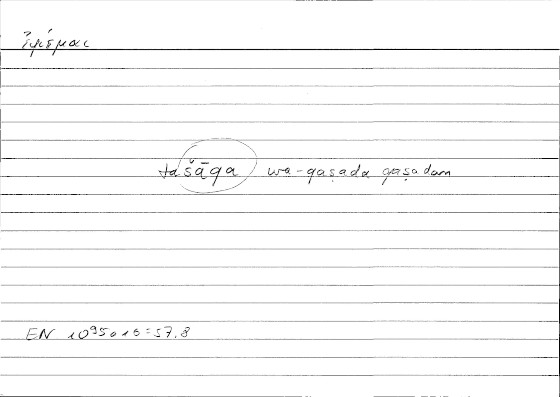 ἐφίεμαι
tašāqa wa-qaṣada qaṣadan
EN 1095a16=57.8